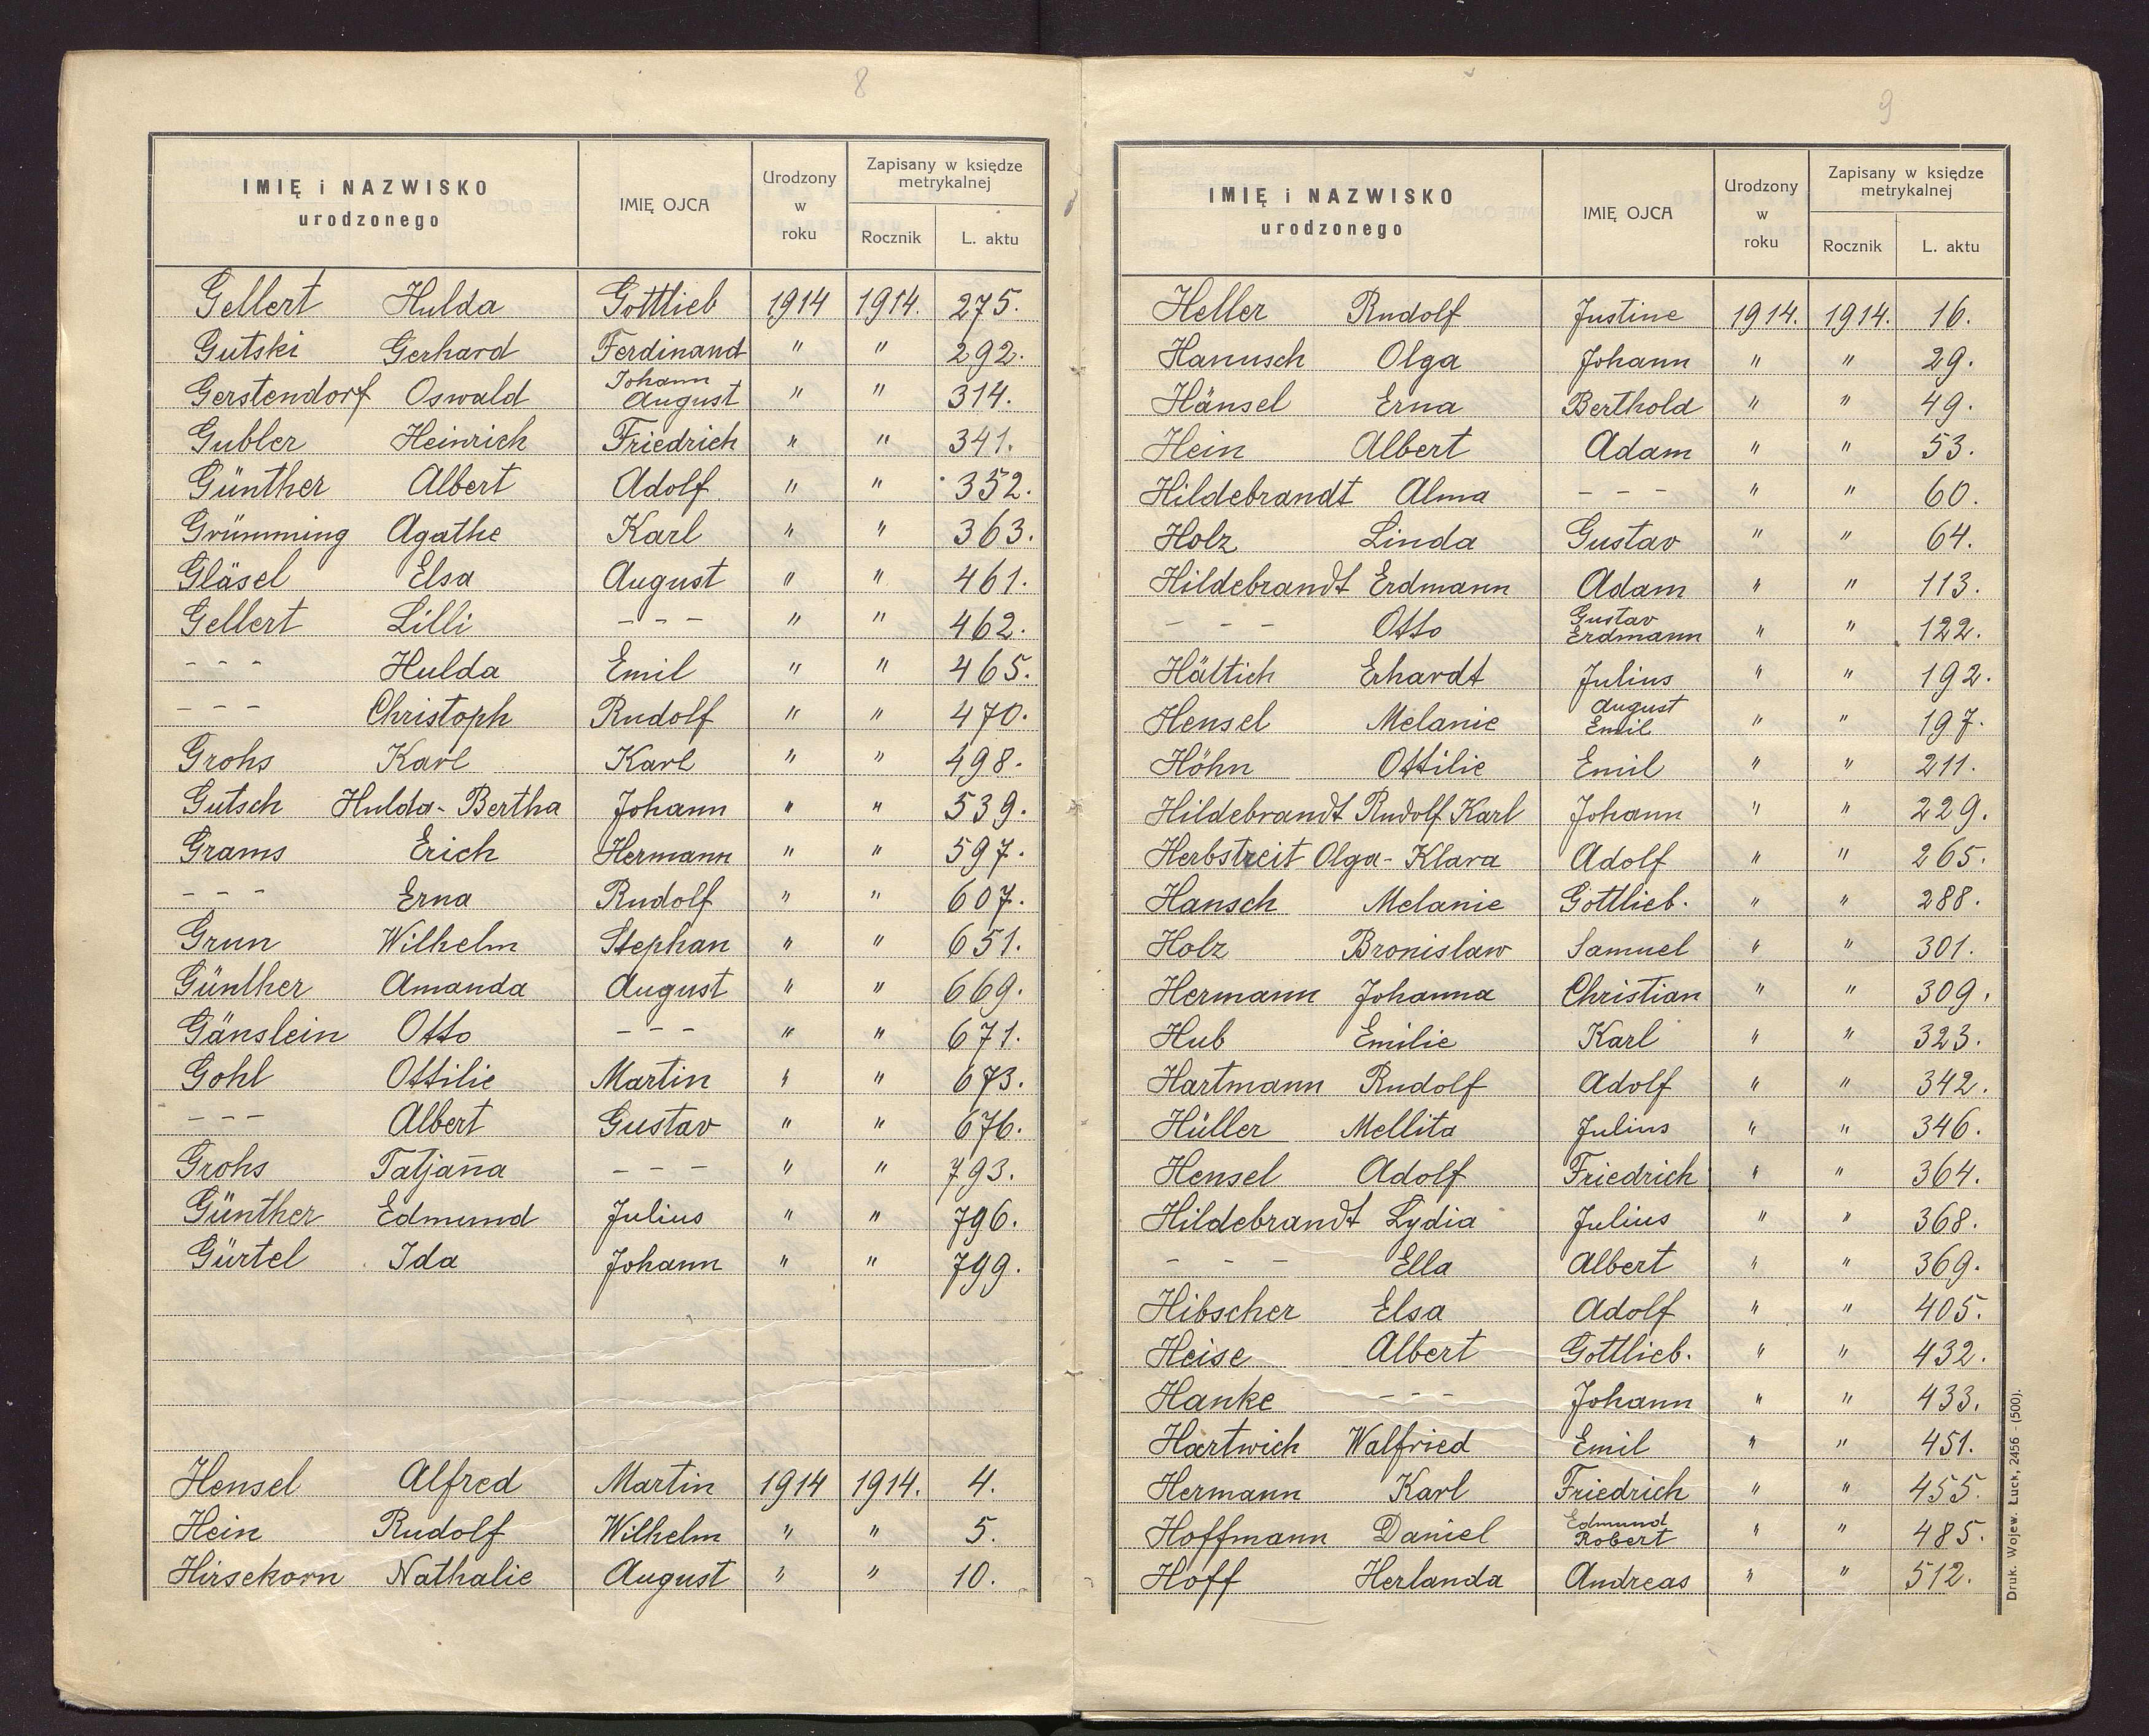 8
IMIĘ i NAZWISKO urodzonego IMIĘ OJCA Urodzony w roku Zapisany w księdze metrykalnej Rocznik L. aktu
Gellert Hulda Gottlieb 1914 1914. 275.
Gutski Gerhard Ferdinand " " 292.
Gerstendorf Oswald Johann August " " 314.
Gubler Heinrich Friedrich " " 341.
Günther Albert Adolf " " 352.
Grümming Agathe Karl " " 363.
Gläsel Elsa August " " 461.
Gellert Lilli - - - " " 462.
- - - Hulda Emil " " 465.
- - - Christoph Rudolf " " 470.
Grohs Karl Karl " " 498.
Gutsch Hulda-Bertha Johann " " 539.
Grams Erich Hermann " " 597.
- - - Erna Rudolf " " 607.
Grun Wilhelm Stephan " " 651.
Günther Amanda August " " 669.
Gänslein Otto - - - " " 671.
Gohl Ottilie Martin " " 673.
- - - Albert Gustav " " 676.
Grohs Tatjana - - - " " 793.
Günther Edmund Julius " " 796.
Gürtel Ida Johann " " 799.
Hensel Alfred Martin 1914 1914. 4.
Hein Rudolf Wilhelm " " 5.
Hirsekorn Nathalie August " " 10.
9
IMIĘ i NAZWISKO urodzonego IMIĘ OJCA Urodzony w roku Zapisany w księdze metrykalnej Rocznik L. aktu
Heller Rudolf Justine 1914. 1914. 16.
Hanusch Olga Johann " " 29.
Hänsel Erna Berthold " " 49.
Hein Albert Adam " " 53.
Hildebrandt Alma - - - " " 60.
Holz Linda Gustav " " 64.
Hildebrandt Erdmann Adam " " 113.
- - - Otto Gustav Erdmann " " 122.
Hättich Erhardt Julius " " 192.
Hensel Melanie August Emil " " 197.
Höhn Ottilie Emil " " 211.
Hildebrandt Rudolf Karl Johann " " 229.
Herbstreit Olga-Klara Adolf " " 265.
Hansch Melanie Gottlieb. " " 288.
Holz Bronislaw Samuel " " 301.
Hermann Johanna Christian " " 309.
Hub Emilie Karl " " 323.
Hartmann Rudolf Adolf " " 342.
Hüller Mellita Julius " " 346.
Hensel Adolf Friedrich " " 364.
Hildebrandt Lydia Julius " " 368.
- - - Ella Albert " " 369.
Hibscher Elsa Adolf " " 405.
Heise Albert Gottlieb. " " 432.
Hanke - - - Johann " " 433.
Hartwich Walfried Emil " " 451.
Hermann Karl Friedrich " " 455.
Hoffmann Daniel Edmund Robert " " 485.
Hoff Herlanda Andreas " " 512.
Druk. Wojew. Łuck, 2456 - (500).